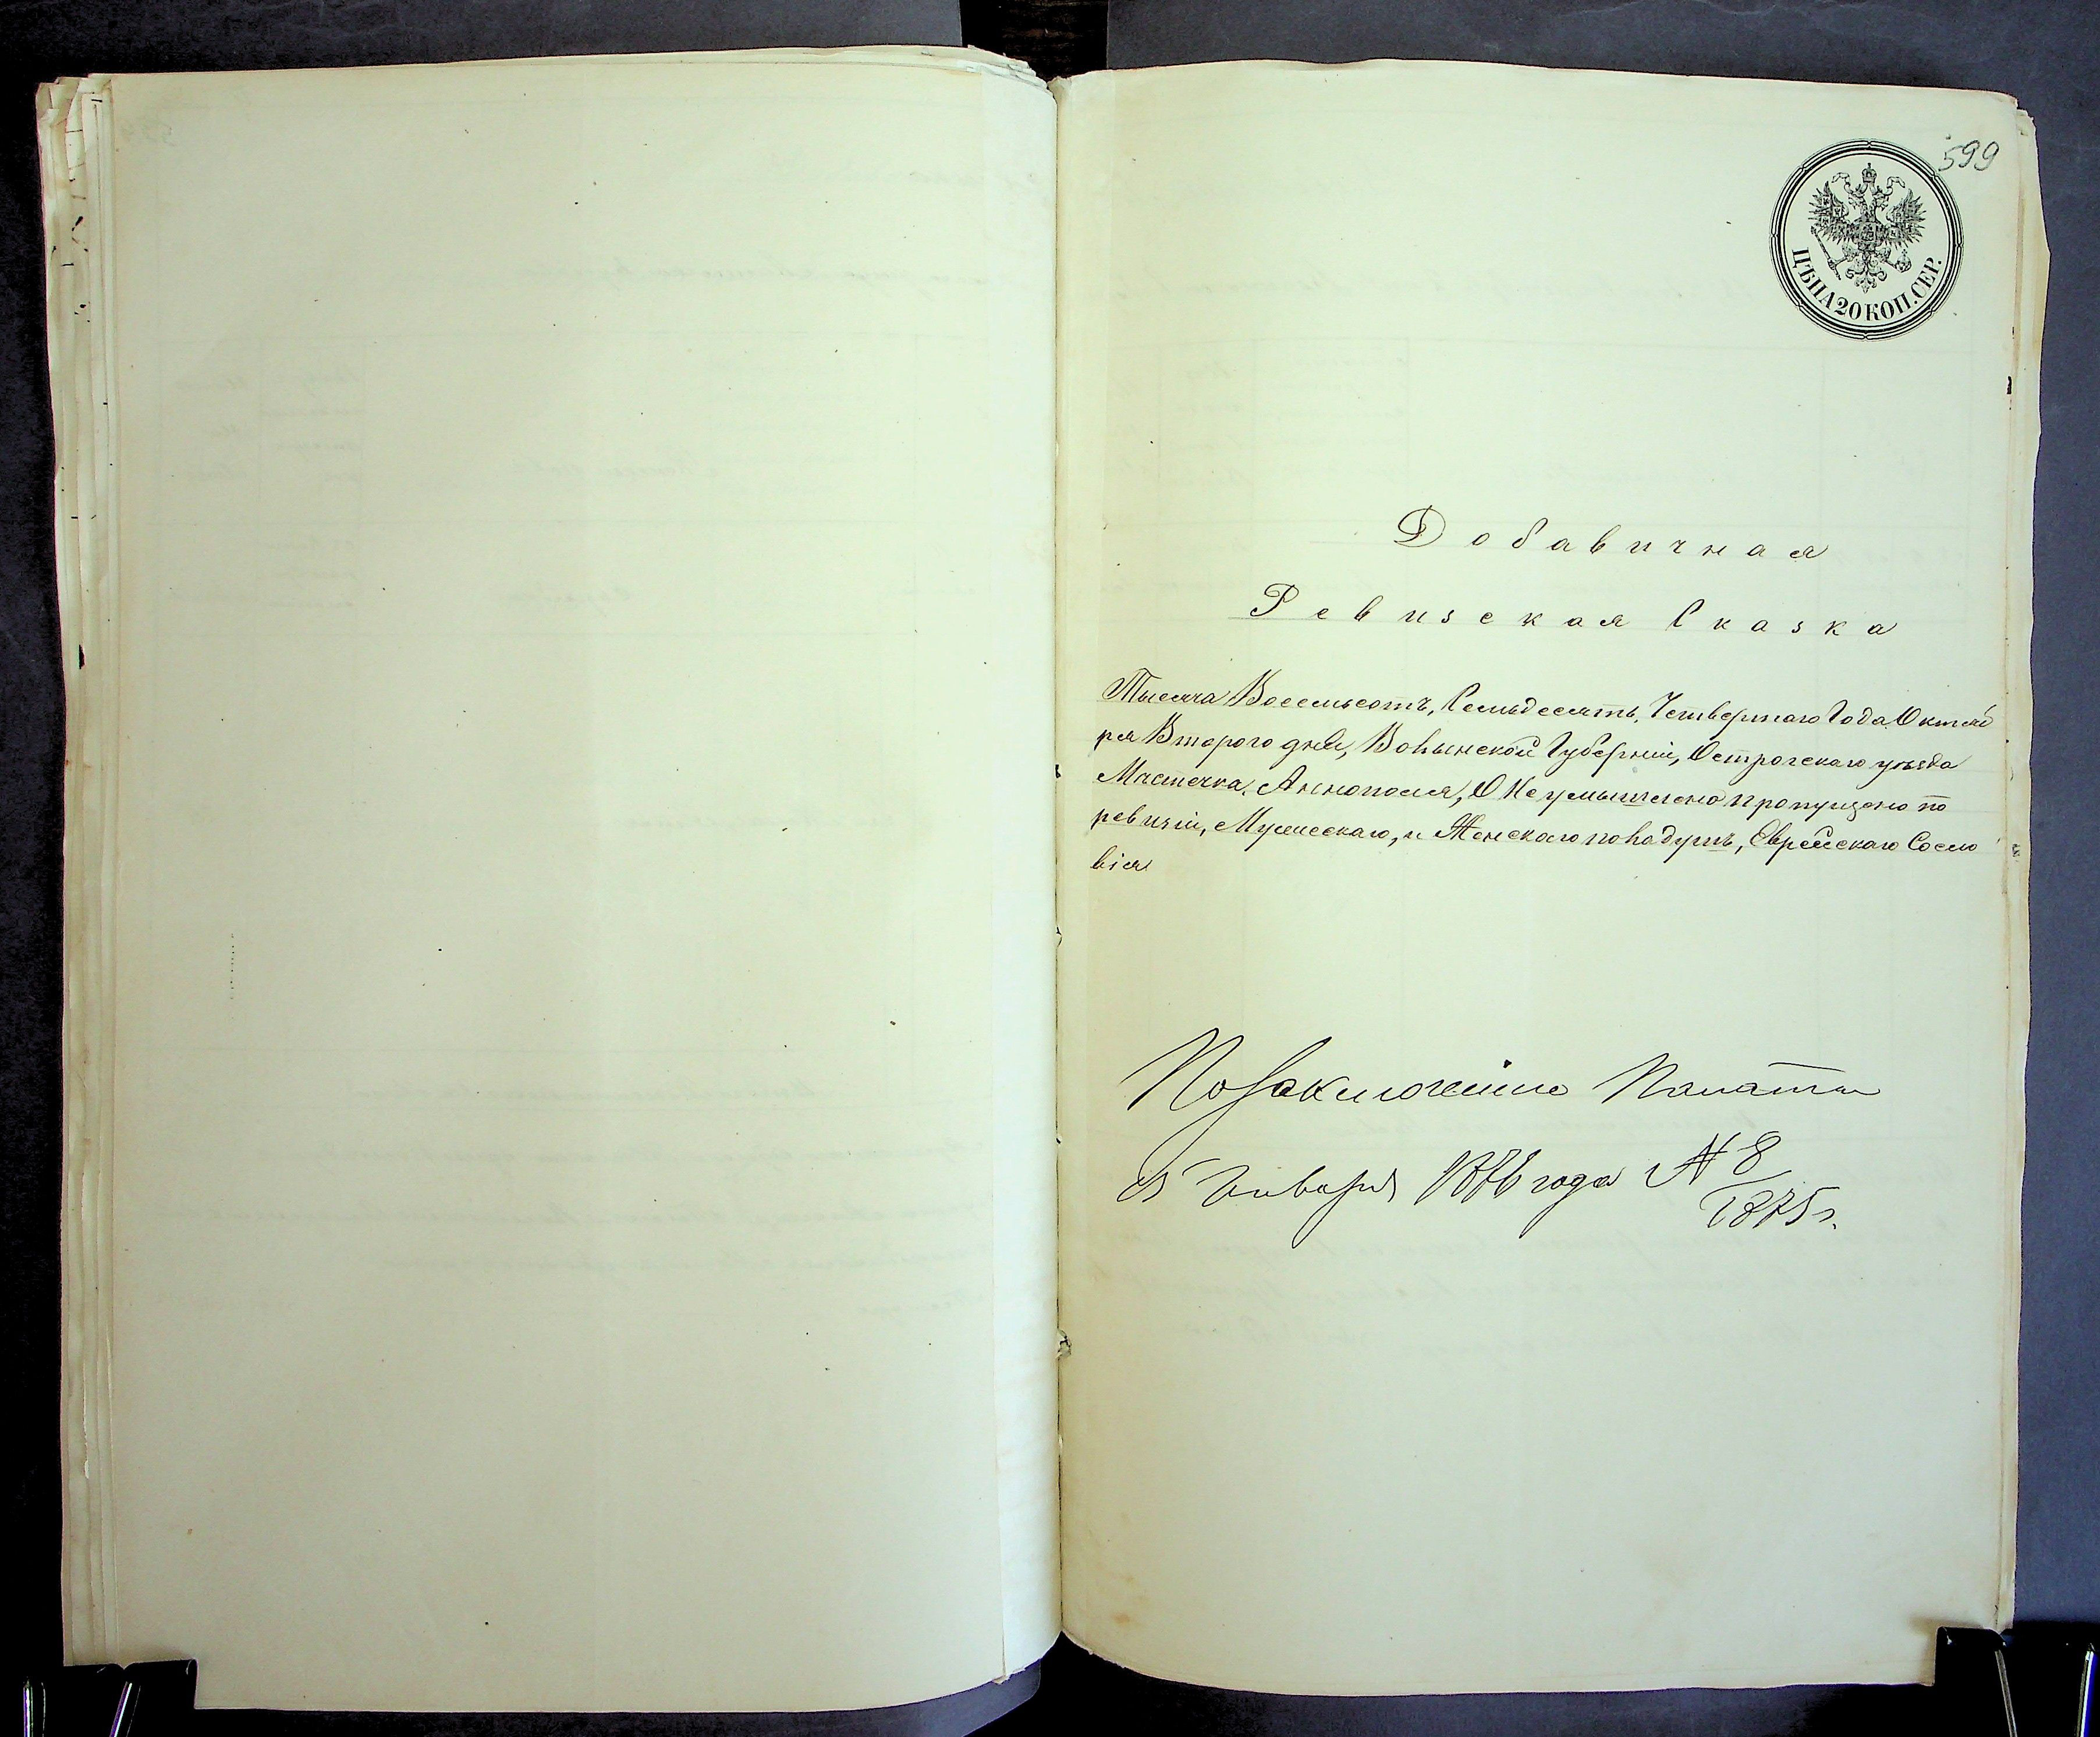 599
ЦѢНА 20 КОП. СЕР.
Добавичная
Ревизская Сказка
Тысяча Восемьсотъ, Семьдесятъ, Четвертаго Года Октяб
ря Второго дня, Волынской Губерніи, Острогскаго уѣзда
Мѣстечка, Аннополя, О Неумышлено пропущено по
ревизіи, Мужескаго, и Женскаго пола душъ, Еврейскаго Сосло
вія
По заключенію Палаты
Января 1876 года № 8
1875 г.